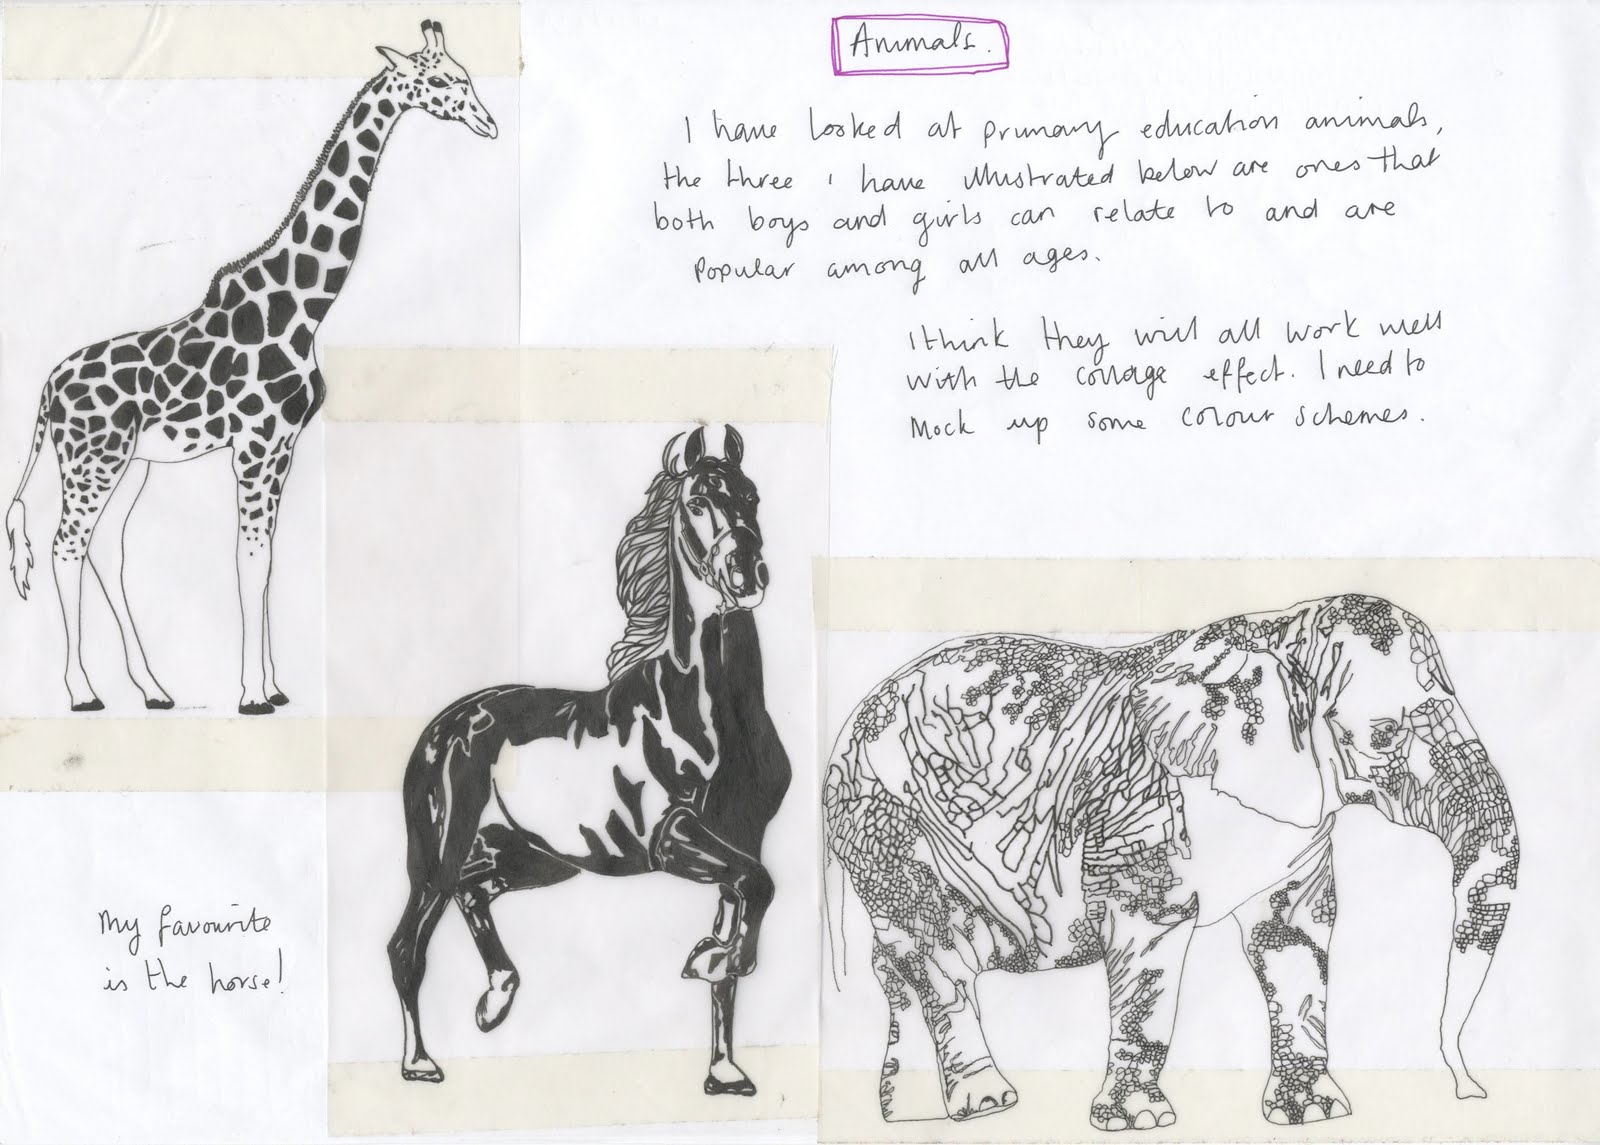 Animals.
I have looked at primary education animals,
the three I have illustrated below are ones that
both boys and girls can relate to and are
popular among all ages.
I think they will all work well
with the collage effect. I need to
mock up some colour schemes.
My favourite
is the horse!